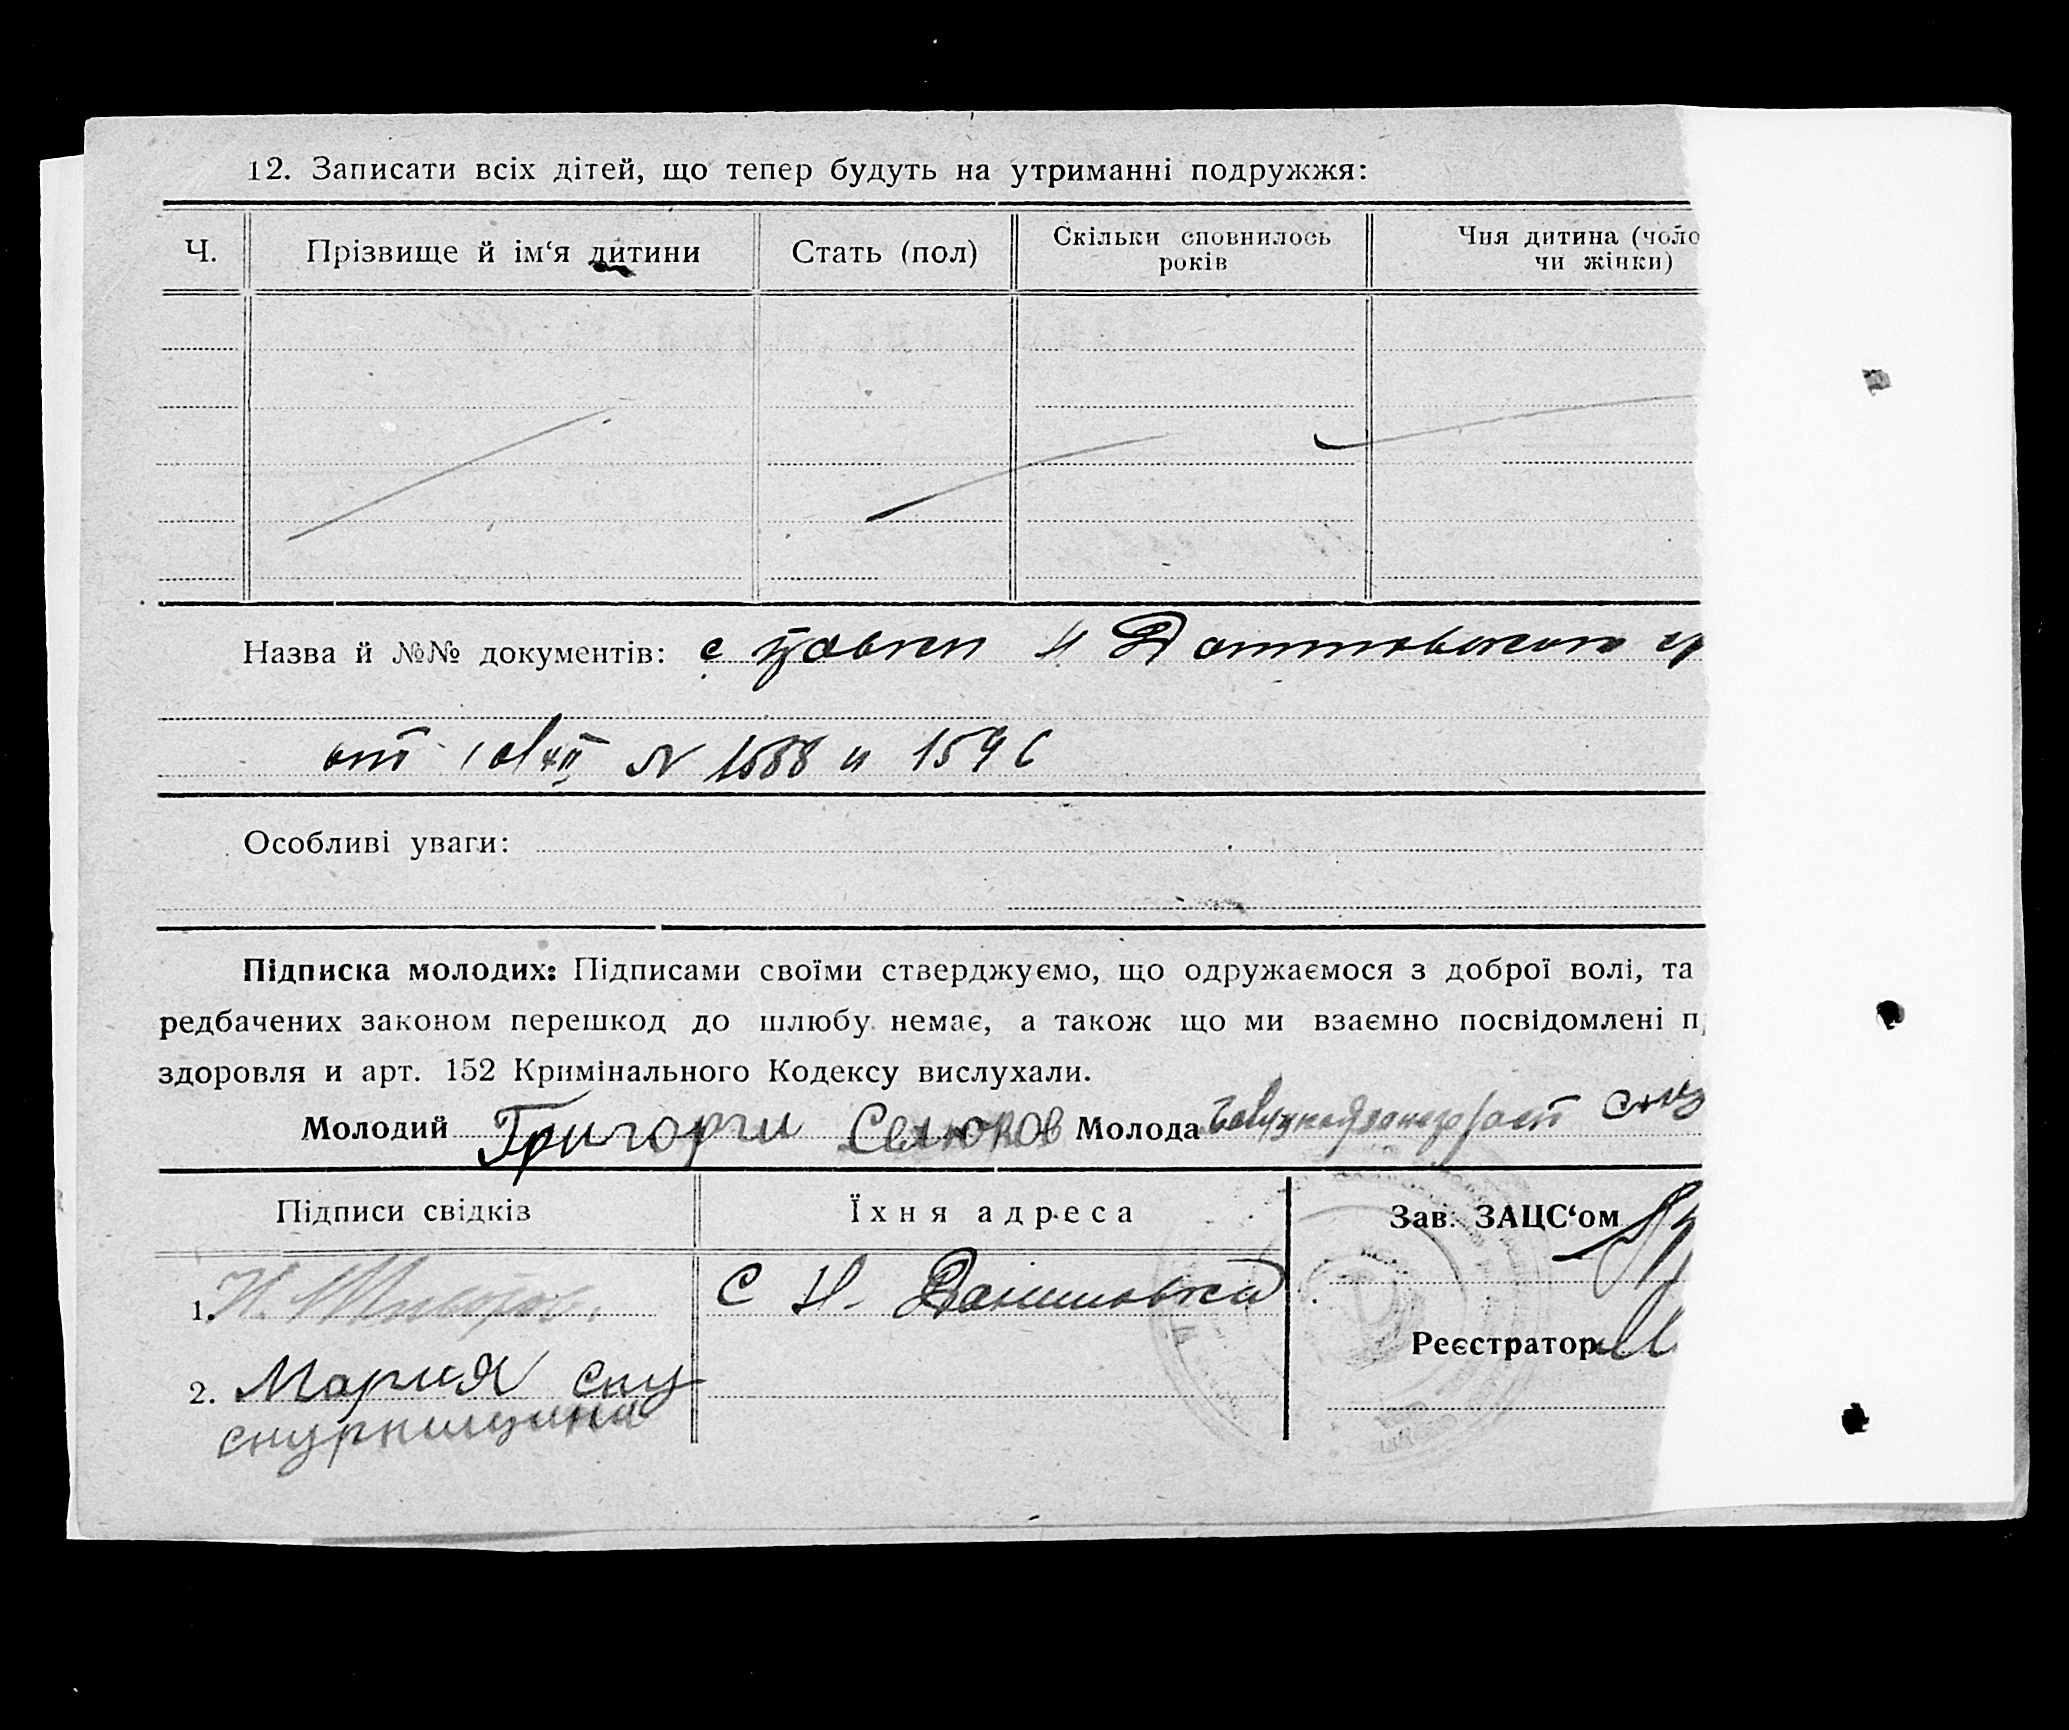 12. Записати всіх дітей, що тепер будуть на утриманні подружжя:
Ч. Прізвище й ім‘я дитини Стать (пол) Скільки сповнилось років Чия дитина (чоло
чи жінки)
Назва й №№ документів: с
от N 1588 и 159
Особливі уваги:
Підписка молодих: Підписами своїми стверджуємо, що одружаємося з доброї волі, та
редбачених законом перешкод до шлюбу немає, а також що ми взаємно посвідомлені п
здоровля и арт. 152 Кримінального Кодексу вислухали.
Молодий Григорги Селюков Молода
Підписи свідків Їхня адреса Зав. ЗАЦС‘ом
1. Н. С Н. Даниловка
Реєстратор
2. Мария